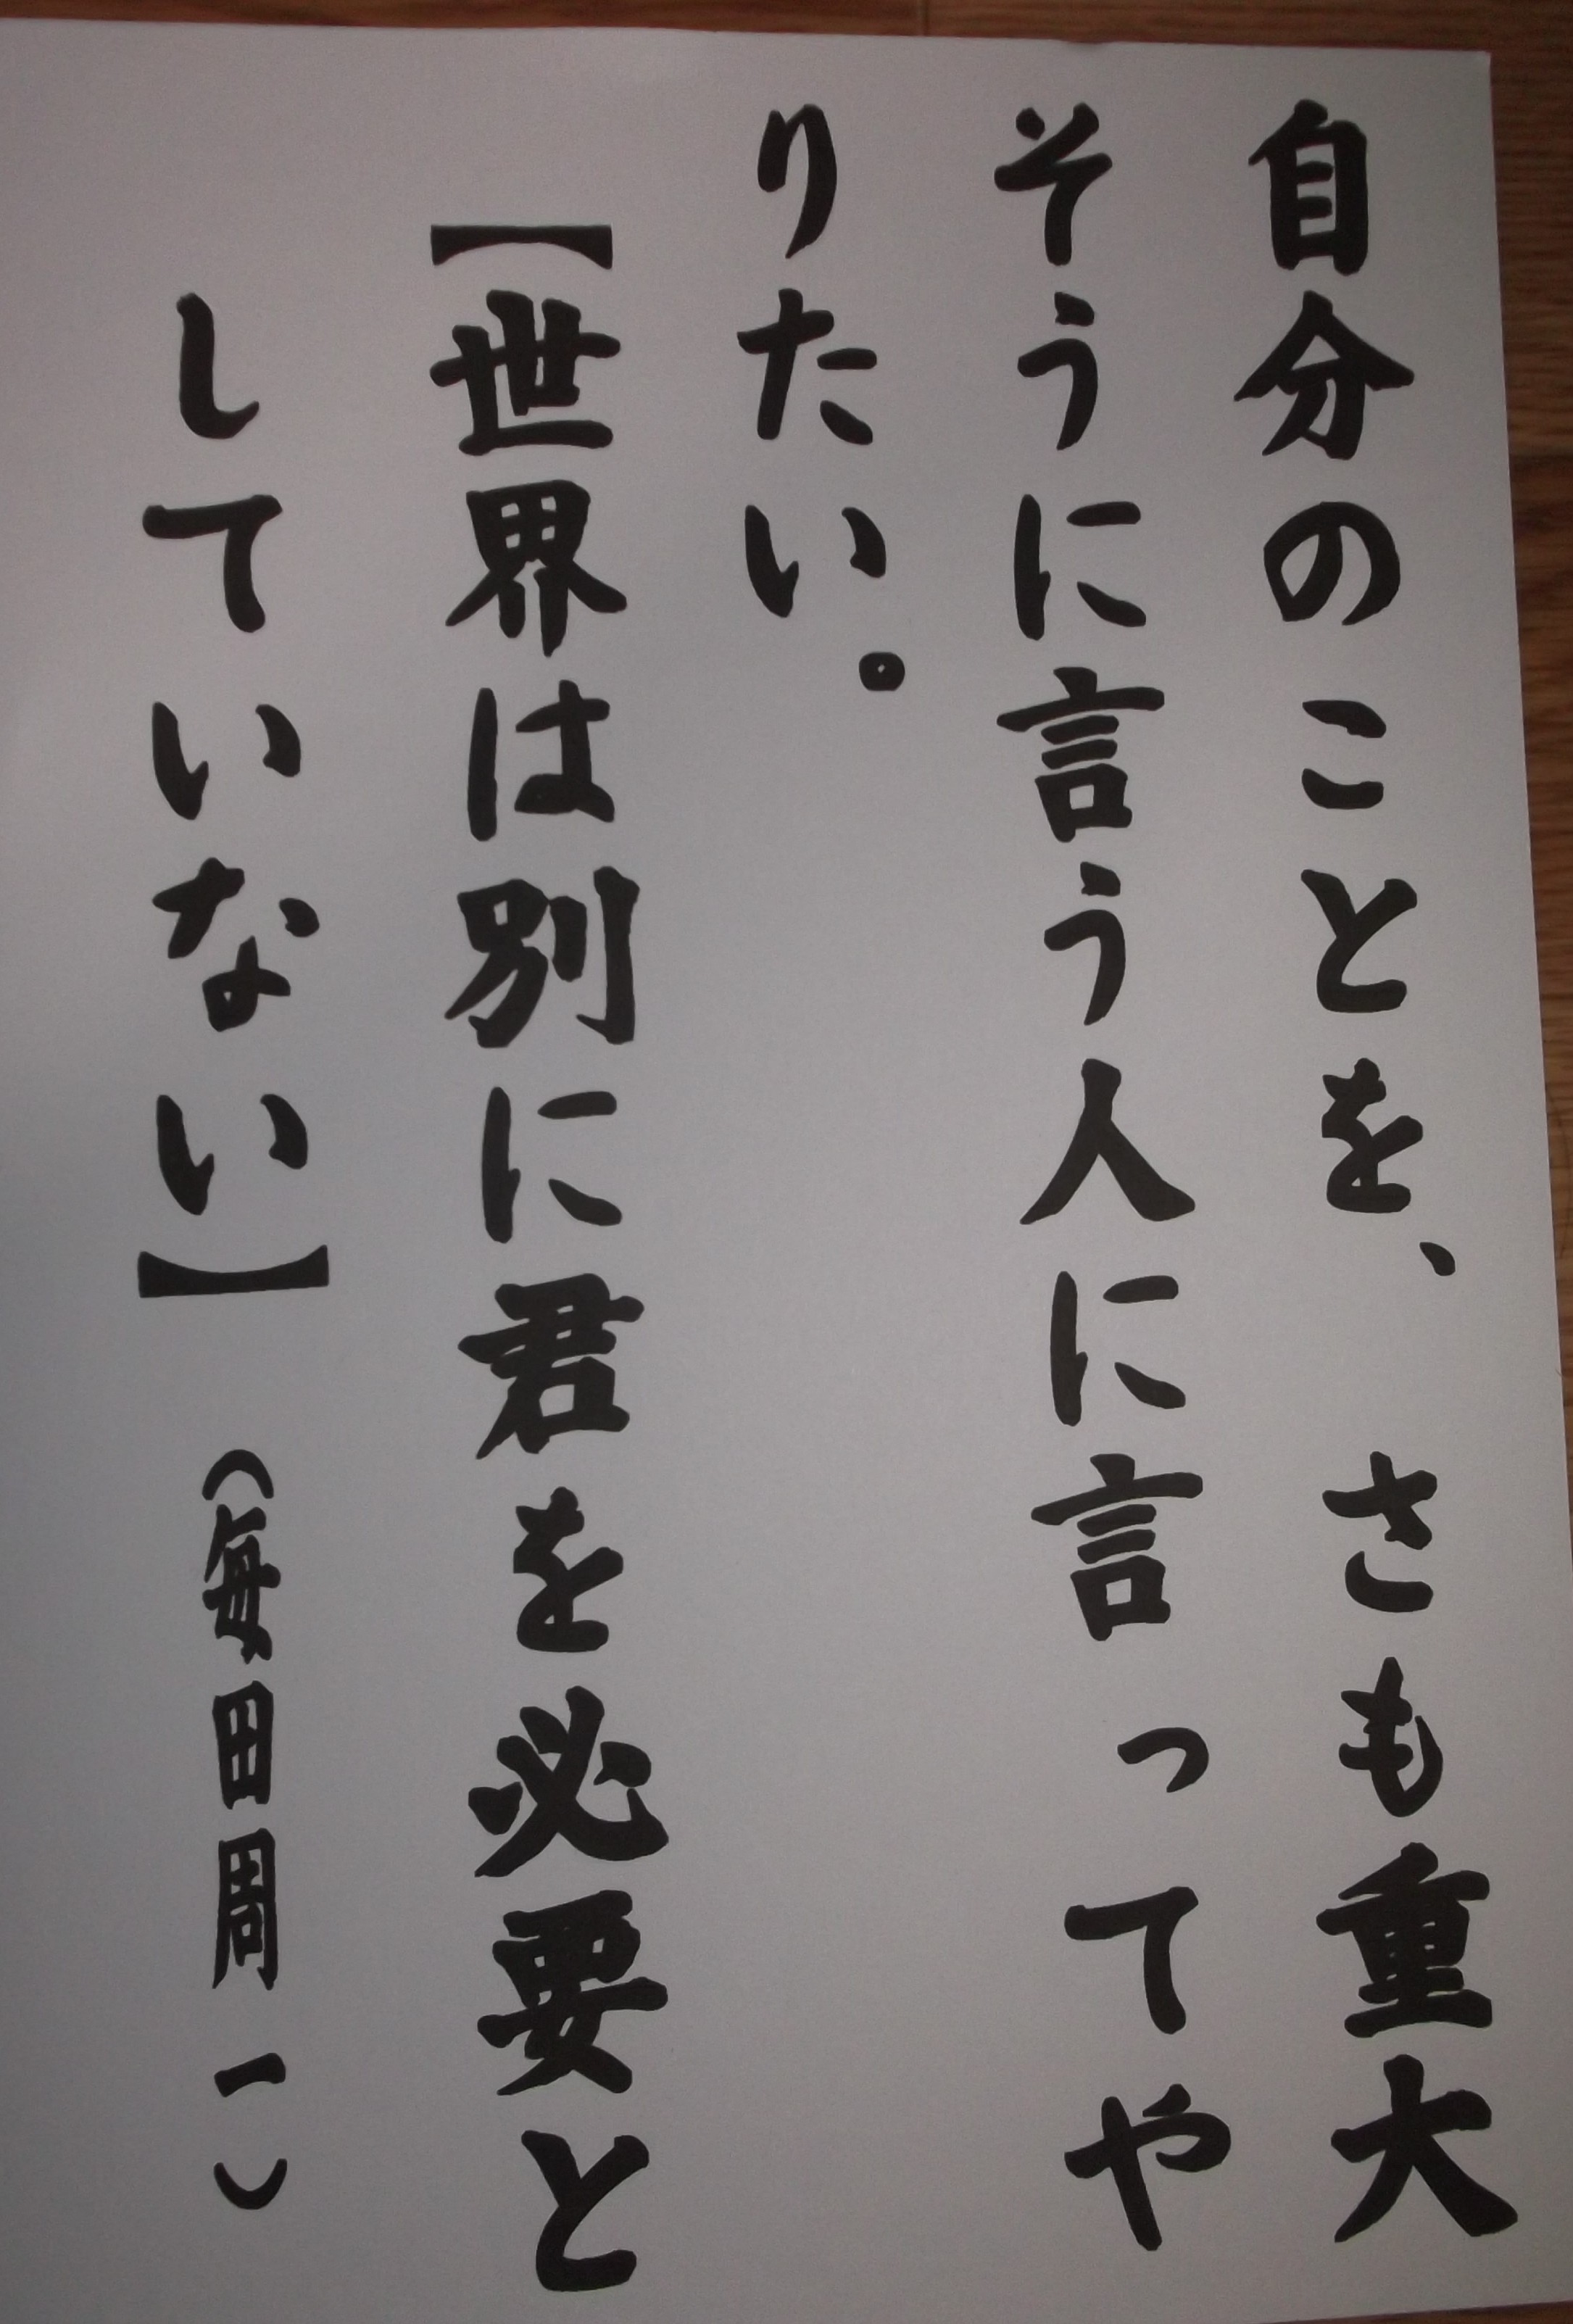 自分のことを、　さも重大
そうに言う人に言ってや
りたい。
【世界は別に君を必要と
していない】　（毎田周一）